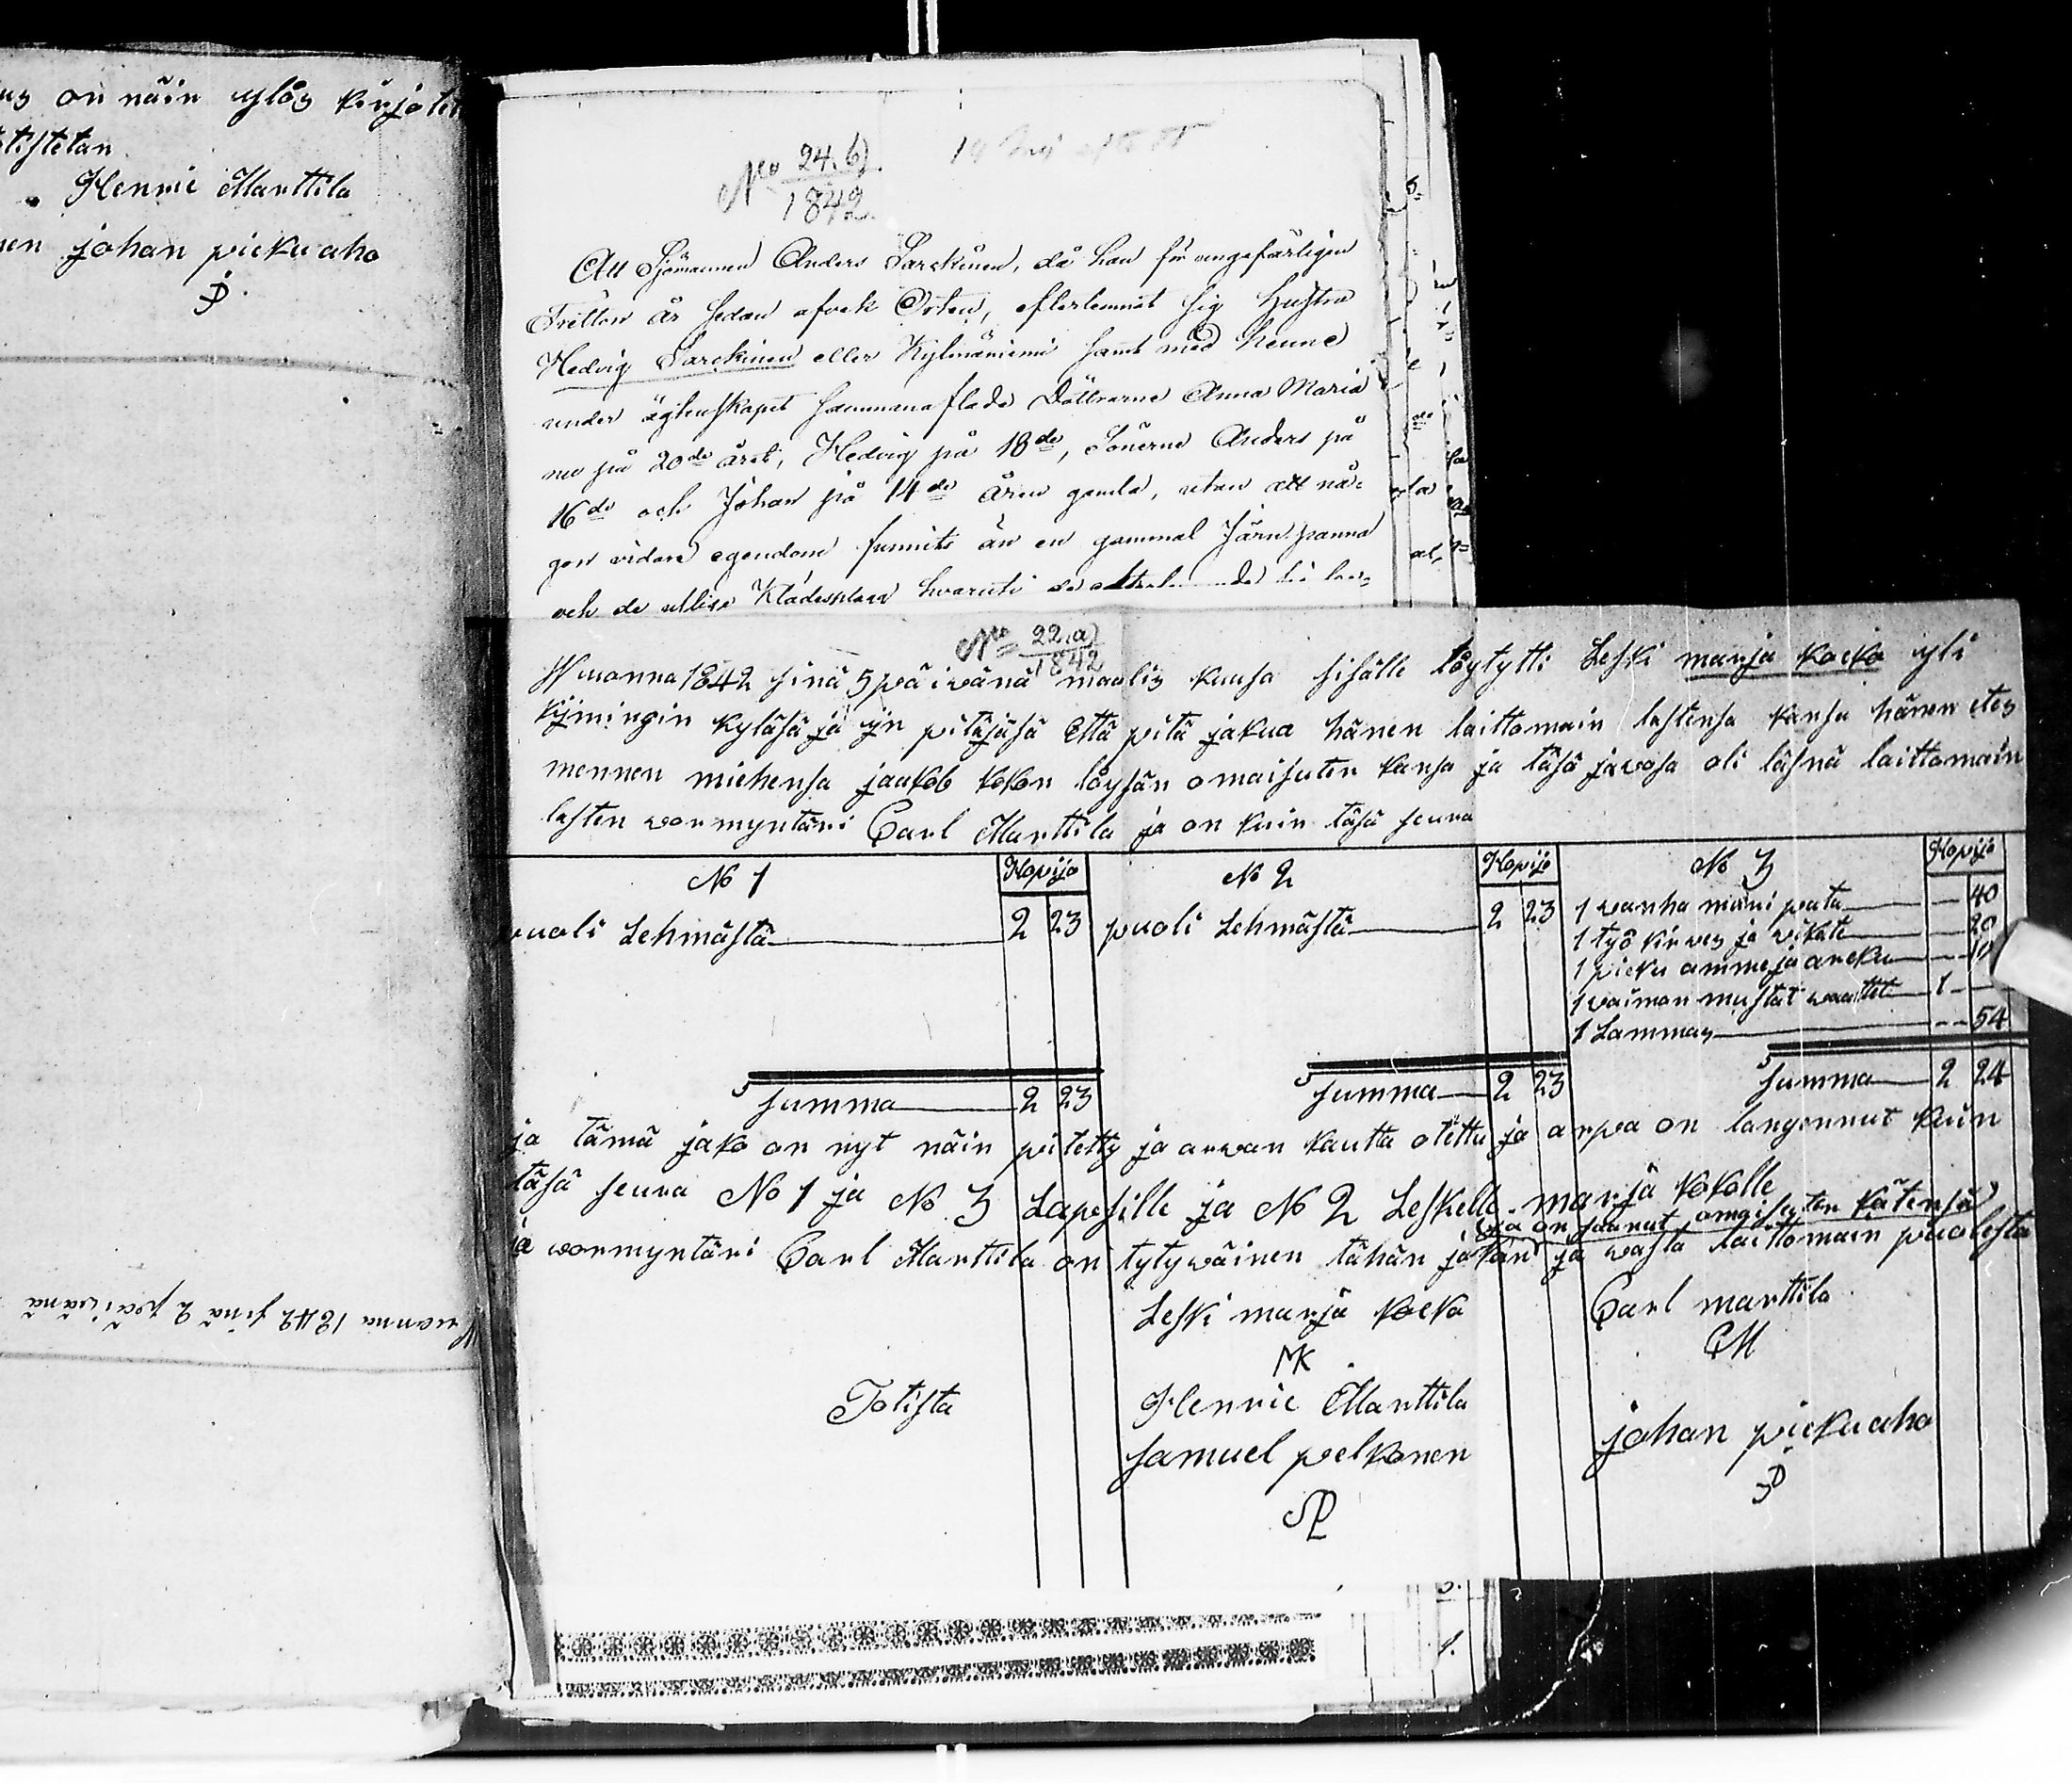 on näin ylös kirjotet
tistetan
Henric Marttila
nen johan piekuaho
JP
Wuonna 1842 sinä 2 päiwänä
No 24. b)
1842
Att Sjömannen Anders Sarckinen, då han för ungefärligen
Tretton år sedan afvek Orten, efterlemnat sig Hustru
Hedvig Sarckinen eller Kylmäniemi samt med henne
under ägtenskapet sammanaflade Döttrarne Anna Maria
nu på 20de året, Hedvig på 18de, Sönerne Anders på
16de och Johan på 14de åren gamla, utan att nå-
gon vidare egendom funnits än en gammal Järn panna
och de usliga Klädesplagg hvaruti
No 22. a)
1842
Wuonna 1842 sinä 5 päiwänä maalis kuusa sisälle löytytti Leski marja kocko yli
kijmingin kyläsä ja ijn pitäjäsä Että pitä jakua hänen laittomain lastensa kansa hänen etes
mennen miehensä jaakob kokon löysän omaisuten kansa ja täsä jawosa oli läsnä laittomain
lasten wormyntäri Carl Marttila ja on kuin täsä seura
No 1 Kopijo No 2 Kopijo No 3 Kopijo
puoli Lehmästä 2 23 puoli Lehmästä 2 23 1 wanha muuri pata — 40
1 työ kirwes ja wikate — 20
1 pieku amme ja arcku — 10
1 waimon mustat waattet 1 —
1 Lammas — 54
summa 2 23 summa 2 23 summa 2 24
ja tämä jako on nyt näin pitetty ja arwan kautta otettu ja arpa on langennut kuin
täsä seura No 1 ja No 3 Lapsille ja No 2 Leskelle marja kokolle
ja on saanut omaisuten kätensä
ja wormyntäri Carl Marttila on tytywäinen tähän jakon ja wasta laittomain puolesta
Leski marja kocko Carl marttila
MK CM
Totista Henric Marttila johan piekuaho
samuel pelkonen JP
SP